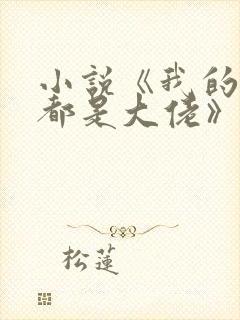 小说《我的
都是大佬》
松莲